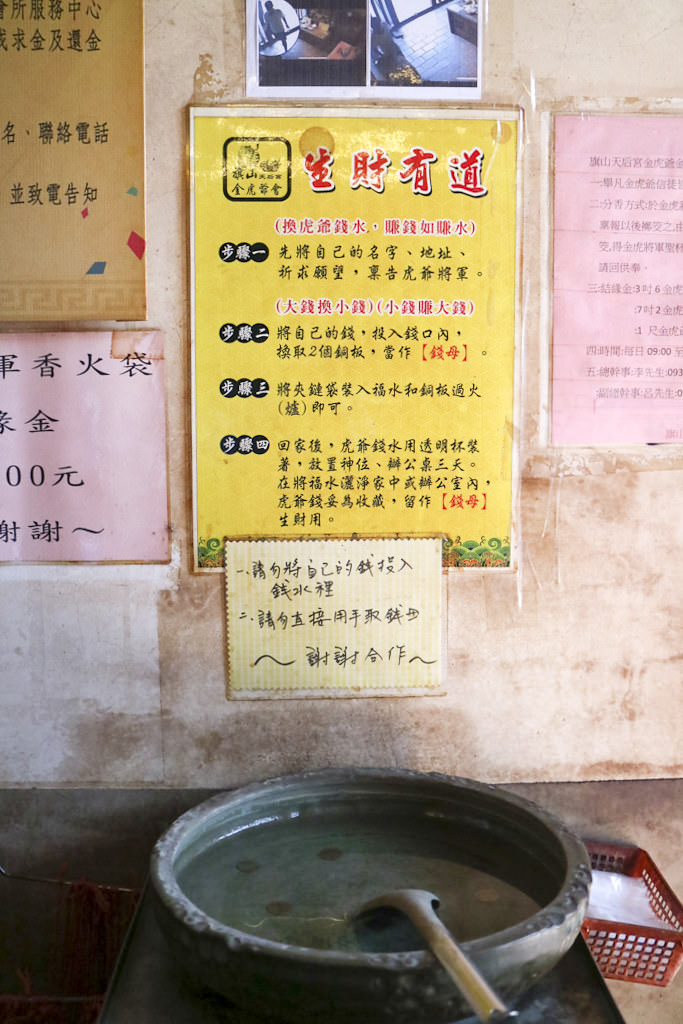 會所服務中心
我求金及還金
名、聯絡電話
並致電告知
軍香火袋
緣金
00元
謝謝～
旗山天后宮
金虎爺會
生財有道
(換虎爺錢水，賺錢如賺水)
步驟一 先將自己的名字、地址、
祈求願望，稟告虎爺將軍。
(大錢換小錢)(小錢賺大錢)
步驟二 將自己的錢，投入錢口內，
換取2個銅板，當作【錢母】。
步驟三 將夾鏈袋裝入福水和銅板過火
(爐)即可。
步驟四 回家後，虎爺錢水用透明杯裝
著，放置神位、辦公桌三天。
在將福水灑淨家中或辦公室內，
虎爺錢妥為收藏，留作【錢母】
生財用。
一、請勿將自己的錢投入
錢水裡
二、請勿直接用手取錢母
～謝謝合作～
旗山天后宮金虎爺金
一:舉凡金虎爺信徒
二:分香方式:於金虎
稟報以後擲筊之,由
筊,得金虎將軍聖杯
請回供奉。
三:結緣金:3吋6金虎
:7吋2金虎
:1 尺金虎爺
四:時間:每日 09:00 至
五:總幹事:李先生:093
:副總幹事:呂先生:0